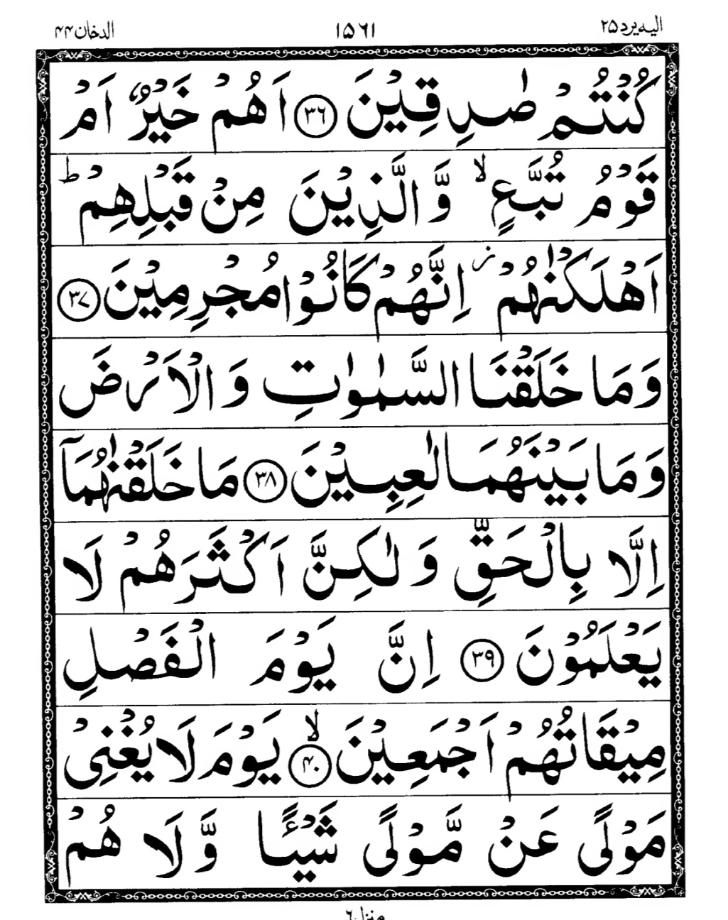 الیه یرد ۲۵ ۱۵۶۱ الدخان ۴۴
كُنْتُمْ صٰدِقِیْنَ ﴿۳۶﴾ اَهُمْ خَیْرٌ اَمْ
قَوْمُ تُبَّعٍ ۙ وَّ الَّذِیْنَ مِنْ قَبْلِهِمْ ؕ
اَهْلَكْنٰهُمْ ؗ اِنَّهُمْ كَانُوْا مُجْرِمِیْنَ ﴿۳۷﴾
وَمَا خَلَقْنَا السَّمٰوٰتِ وَ الْاَرْضَ
وَمَا بَیْنَهُمَا لٰعِبِیْنَ ﴿۳۸﴾ مَا خَلَقْنٰهُمَاۤ
اِلَّا بِالْحَقِّ وَ لٰكِنَّ اَكْثَرَهُمْ لَا
یَعْلَمُوْنَ ﴿۳۹﴾ اِنَّ یَوْمَ الْفَصْلِ
مِیْقَاتُهُمْ اَجْمَعِیْنَ ﴿ۙ۴۰﴾ یَوْمَ لَا یُغْنِیْ
مَوْلًی عَنْ مَّوْلًی شَیْـًٔا وَّ لَا هُمْ
منزل ۶